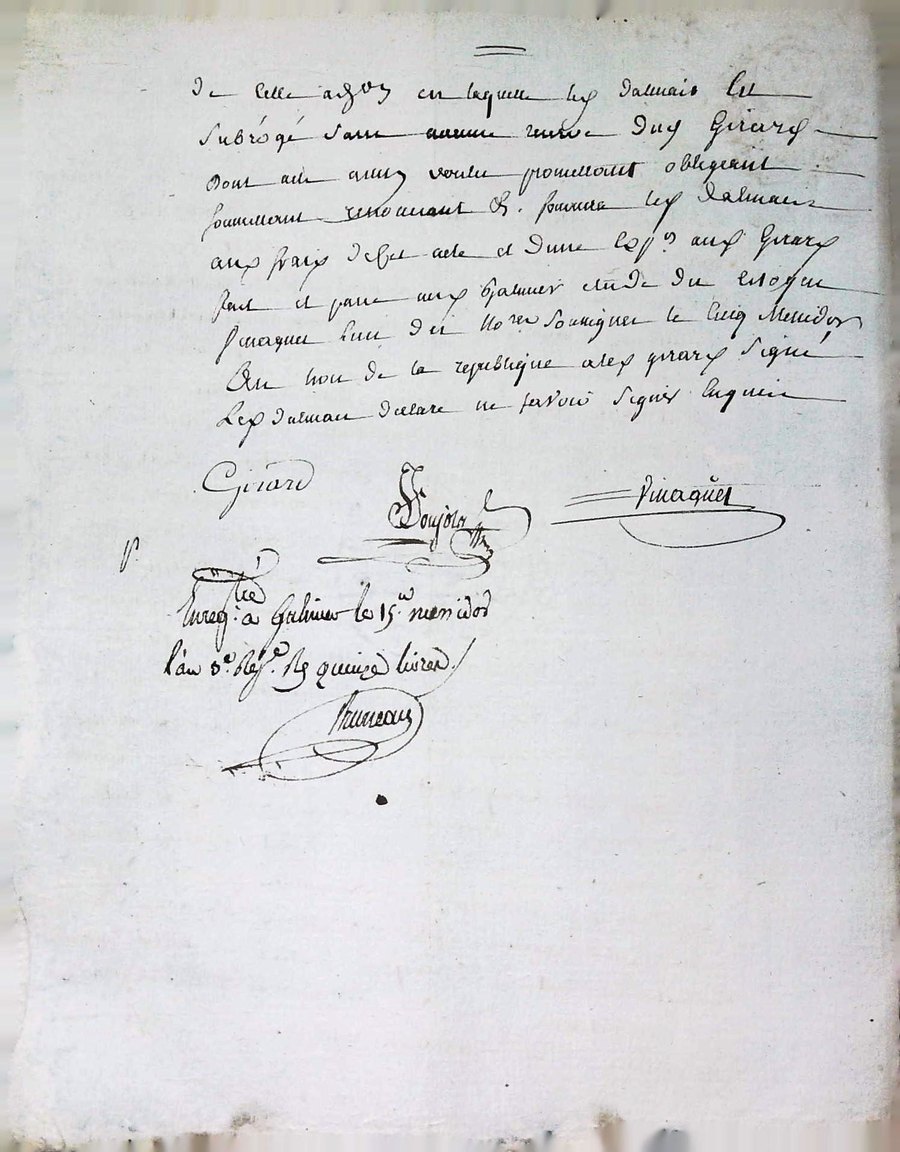 de celle adon en laquelle led dalmais est
Subrogé sans aucune reserve dud Girard
dont acte ainsy voulu promettant obligeant
soumettant renonçant &. fournira led dalmais
aux fraix de cet acte et d'une exp.on aud Girard
fait et passé aud Galmier etude du citoyen
Pinaquet l'un des no.res Soussignés le cinq Messidor
An trois de la republique avec girard Signé
Led dalmais declaré ne savoir Signer Enquis
Girard
Pinaquet
Enreg.tré à Galmier le 15. messidor
l'an 3.e Rep.e R quinze livres.
Pruneau